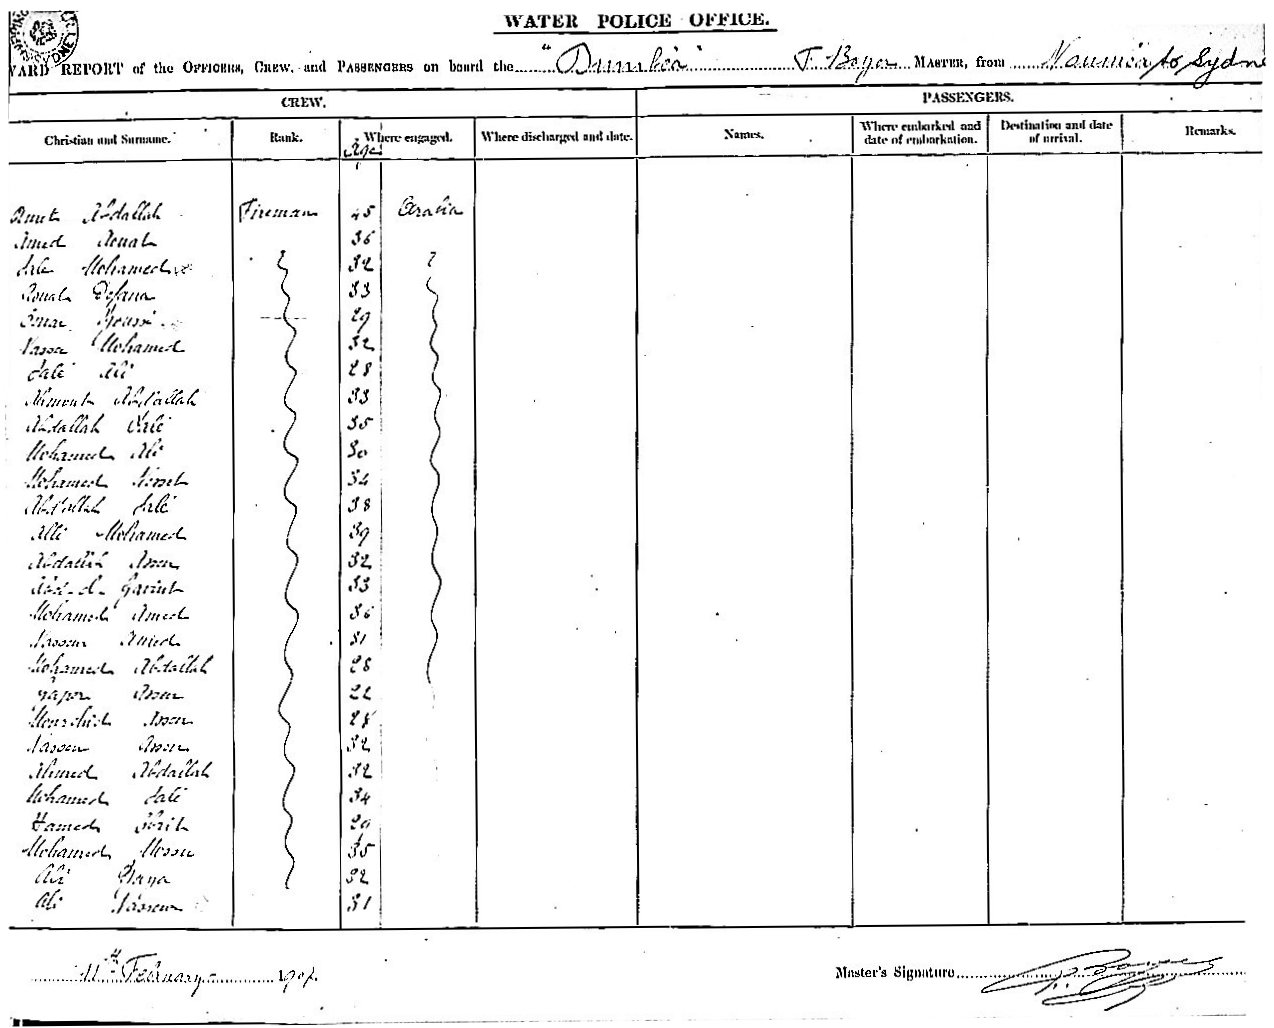 WATER POLICE OFFICE.
WARD REPORT of the OFFICERS, CREW, and PASSENGERS on board the "Dumbéa" T Boyer MASTER, from Nouméa to Sydne
CREW. PASSENGERS.
Christian and Surname. Rank. Age Where engaged. Where discharged and date. Names. Where embarked and date of embarkation. Destination and date of arrival. Remarks.
Abdallah Fireman 45 Arabia
Amed Aouat 36
Sale Mohamed 32
Aouat 33
Omar Moussi 29
Nasser Mohamed 32
Sale Ali 28
Ahmout Abdallah 33
Abdallah Sale 35
Mohamed Ali 30
Mohamed 34
Abdallah Sale 38
Alli Mohamed 39
Abdallah Assen 32
33
Mohamed Amed 36
Nassen Amed 31
Mohamed Abdallah 28
Assen 22
Mourchid Assen 28
Nassen Assen 32
Ahmed Abdallah 32
Mohamed Sale 34
Hamed 29
Mohamed Mossen 35
Ali 32
Ali Nassen 31
11th February 1907.
Master's Signature